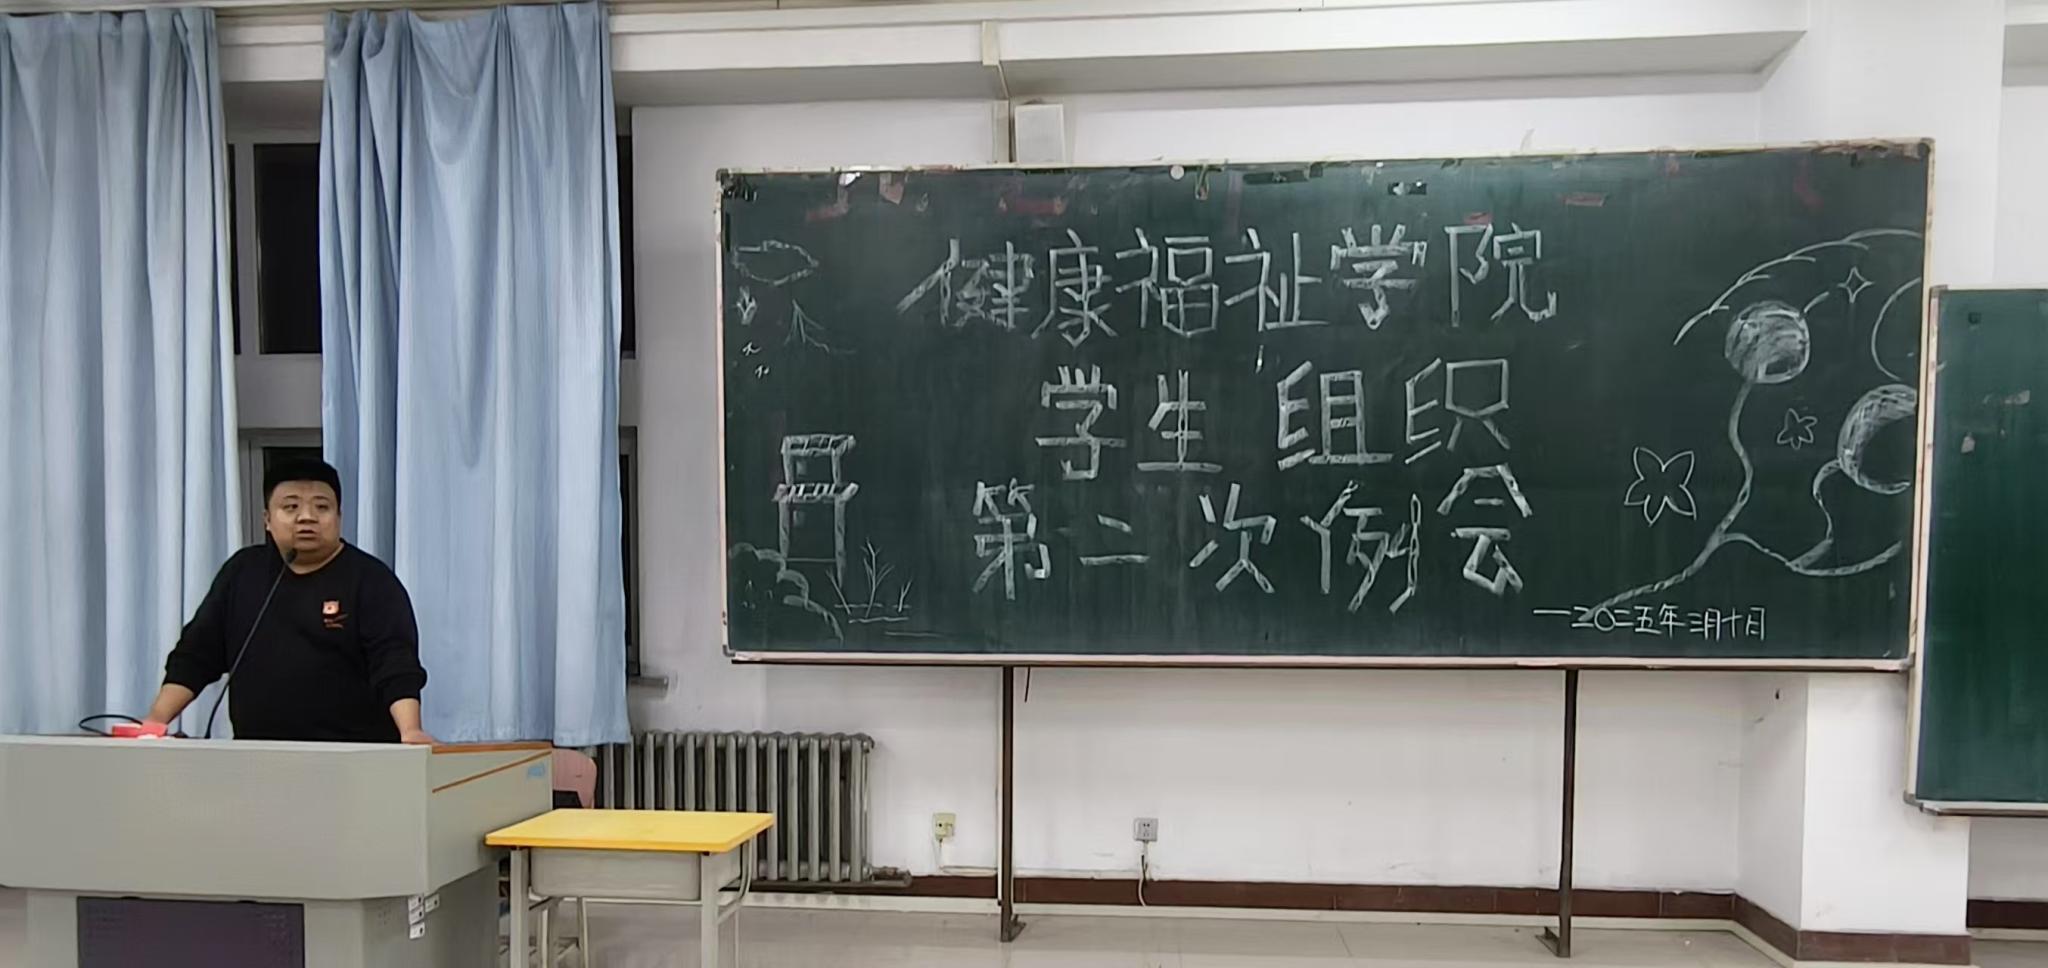 健康福祉学院
学生组织
第二次例会
一二〇二五年三月十日